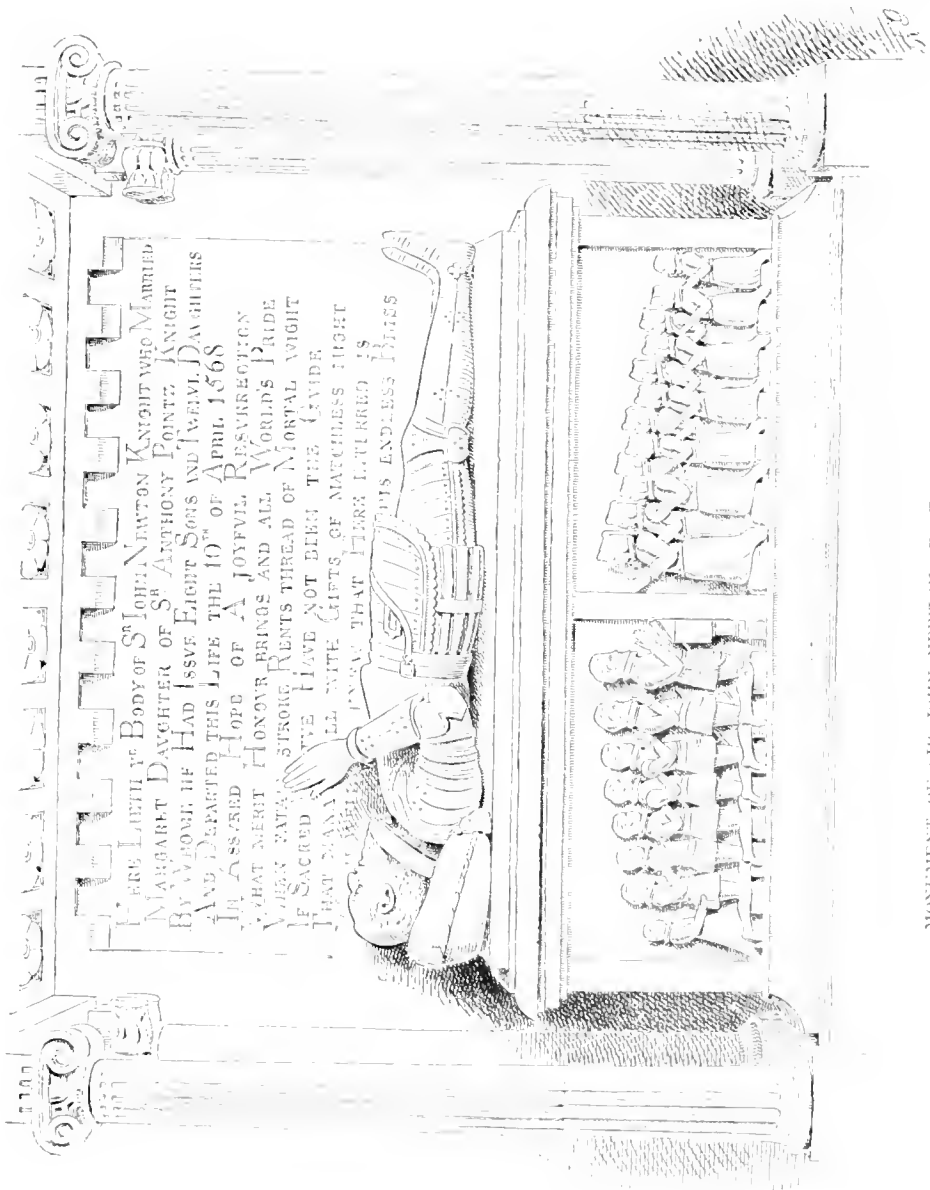 HERE LIETH Yᴱ BODY OF Sᴿ IOHN NEWTON KNIGHT WHO MARRIED
MARGARET DAVGHTER OF Sᴿ ANTHONY POINTZ KNIGHT
BY WHOME HE HAD ISSVE EIGHT SONS AND TWELVE DAVGHTERS
AND DEPARTED THIS LIFE THE 10ᵀᴴ OF APRIL 1568
IN ASSVRED HOPE OF A JOYFVLL RESVRRECTION
WHAT MERIT HONOVR BRINGS AND ALL WORLDS PRIDE
WHEN FATAL STROKE RENTS THREAD OF MORTAL WIGHT
IF SACRED HAVE NOT BEEN THE GVIDE
THAT MANA WITH GIFTS OF MATCHLESS MIGHT
KNOW THAT HERE INTERRED IS
HIS ENDLESS BLISS
MONUMENT